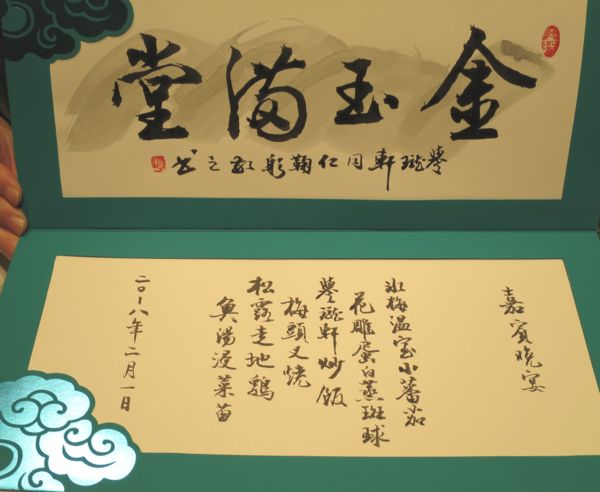 金玉滿堂
譽瓏軒同仁鞠躬
嘉賓晚宴
冰梅溫室小蕃茄
花雕蛋白蒸斑球
譽瓏軒炒飯
梅頭叉燒
松露走地鷄
魚湯浸菜苗
二〇一八年二月一日